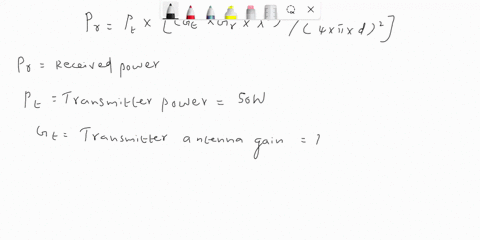 Pr = Pt × [(Gt × Gr × λ²) / (4×π×d)²]
Pr = Received power
Pt = Transmitter power = 50W
Gt = Transmitter antenna gain = 1